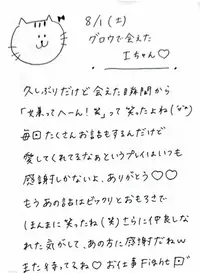 8/1(土)
グロウで会えた
Iちゃん♡
久しぶりだけど会えた瞬間から
「来ってへーん!笑」って笑ったよね(^^)
毎回たくさんお話もするんだけど
愛してくれてるなぁというプレイはいつも
感謝しかないよ、ありがとう♡♡
もうあの話はビックリとおもろさで
ほんまに笑ったね(笑)さらに仲良くな
れた気がして、あの方に感謝だねw
また待ってるね♡お仕事Fight